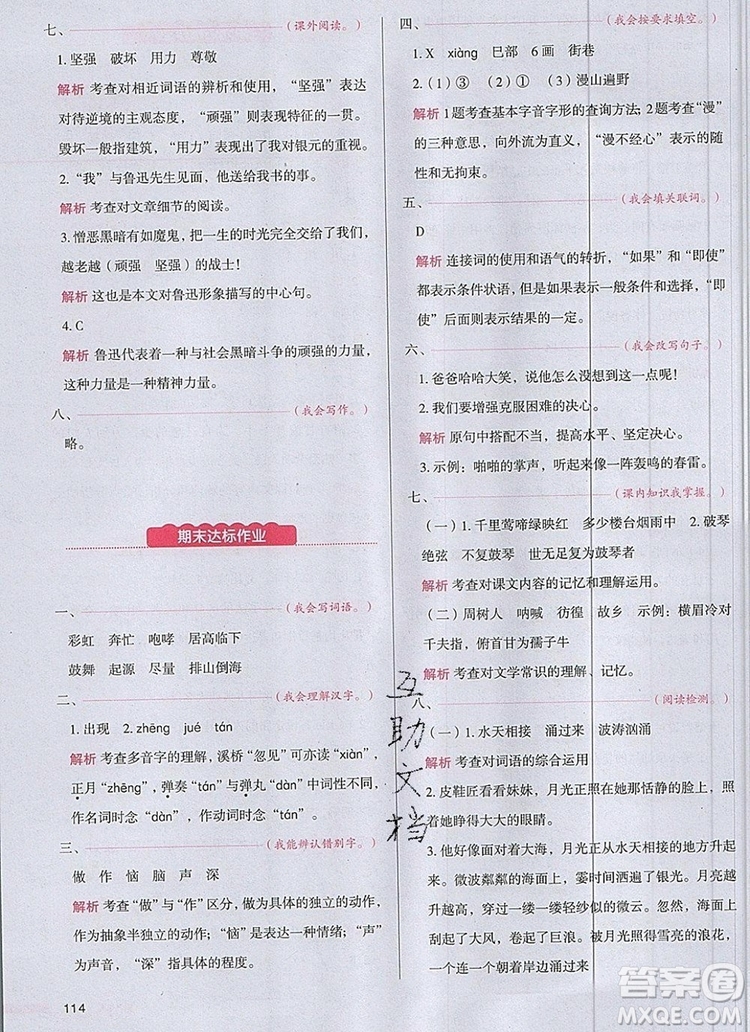 七、（课外阅读。）
1. 坚强　破坏　用力　尊敬
解析 考查对相近词语的辨析和使用，“坚强”表达
对待逆境的主观态度，“顽强”则表现传统的一贯。
毁坏一般指建筑，“用力”写出了我对银元的重视。
2. “我”与鲁迅先生见面，他送给我书的事。
解析 考查对文章细节的阅读。
3. 憎恶黑暗有如魔鬼，把一生的时光完全交给了我们，
越老越（顽强　坚强）的战士！
解析 这也是本文对鲁迅形象描写的中心句。
4. C
解析 鲁迅代表着一种与社会黑暗斗争的顽强的力量，
这种力量是一种精神力量。
八、（我会写作。）
略。
期末达标作业
一、（我会写词语。）
彩虹　奔忙　咆哮　居高临下
鼓舞　起源　尽量　排山倒海
二、（我会理解汉字。）
1. 出现　2. zhēng　jué　tán
解析 考查多音字的理解，溪桥“忽见”可亦读“xiàn”，
正月“zhēng”，弹奏“tán”与弹丸“dàn”中词性不同，
作名词时念“dàn”，作动词时念“tán”。
三、（我能辨认错别字。）
做　作　恼　脑　声　深
解析 考查“做”与“作”区分，做为具体的独立的动作，
作为抽象半独立的动作；“恼”是表达一种情绪；“声”
为声音，“深”指具体的程度。
114
四、（我会按要求填空。）
1. X　xiàng　巳部　6 画　街巷
2.（1）③　①（2）②　（3）漫山遍野
解析 1题考查基本字音字形的查询方法；2题考查“漫”
的三种意思，向外流为满溢，“漫不经心”表示的是随
意和无拘束。
五、（我会填关联词。）
D
解析 连接词的使用和语气的转折，“如果”和“即使”
都表示条件状语，但是表示一般条件和选择，“即
使”后面表示结果的一定。
六、（我会改写句子。）
1. 爸爸哈哈大笑，说他怎么没想到这一点呢！
2. 我们要增强克服困难的决心。
解析 原句中搭配不当，提高水平、坚定决心。
3. 示例：啪啪的掌声，好像一阵轰鸣的春雷。
七、（课内知识我掌握。）
（一）1. 千里莺啼绿映红　多少楼台烟雨中　2. 破琴
绝弦　不复鼓琴　世无足复为鼓琴者
解析 考查对课文内容的记忆和理解运用。
（二）周树人　呐喊　彷徨　故乡　示例：横眉冷对
千夫指，俯首甘为孺子牛
解析 考查对文学常识的理解、记忆。
八、（阅读检测。）
（一）1. 水天相接　涌过来　波涛汹涌
解析 考查对词语的综合运用
2. 皮鞋匠看看妹妹，月光正照在她那恬静的脸上，照
着她睁得大大的眼睛。
3. 他好像面对着大海，月光正从水天相接的地方升起
来。微波粼粼的海面上，霎时间洒遍了银光。月亮越
升越高，穿过一缕一缕轻纱似的微云。忽然，海面上
刮起了大风，卷起了巨浪。被月光照得雪亮的浪花，
一个连一个朝着岸边涌过来
互助文档
答案圈
MXQE.COM